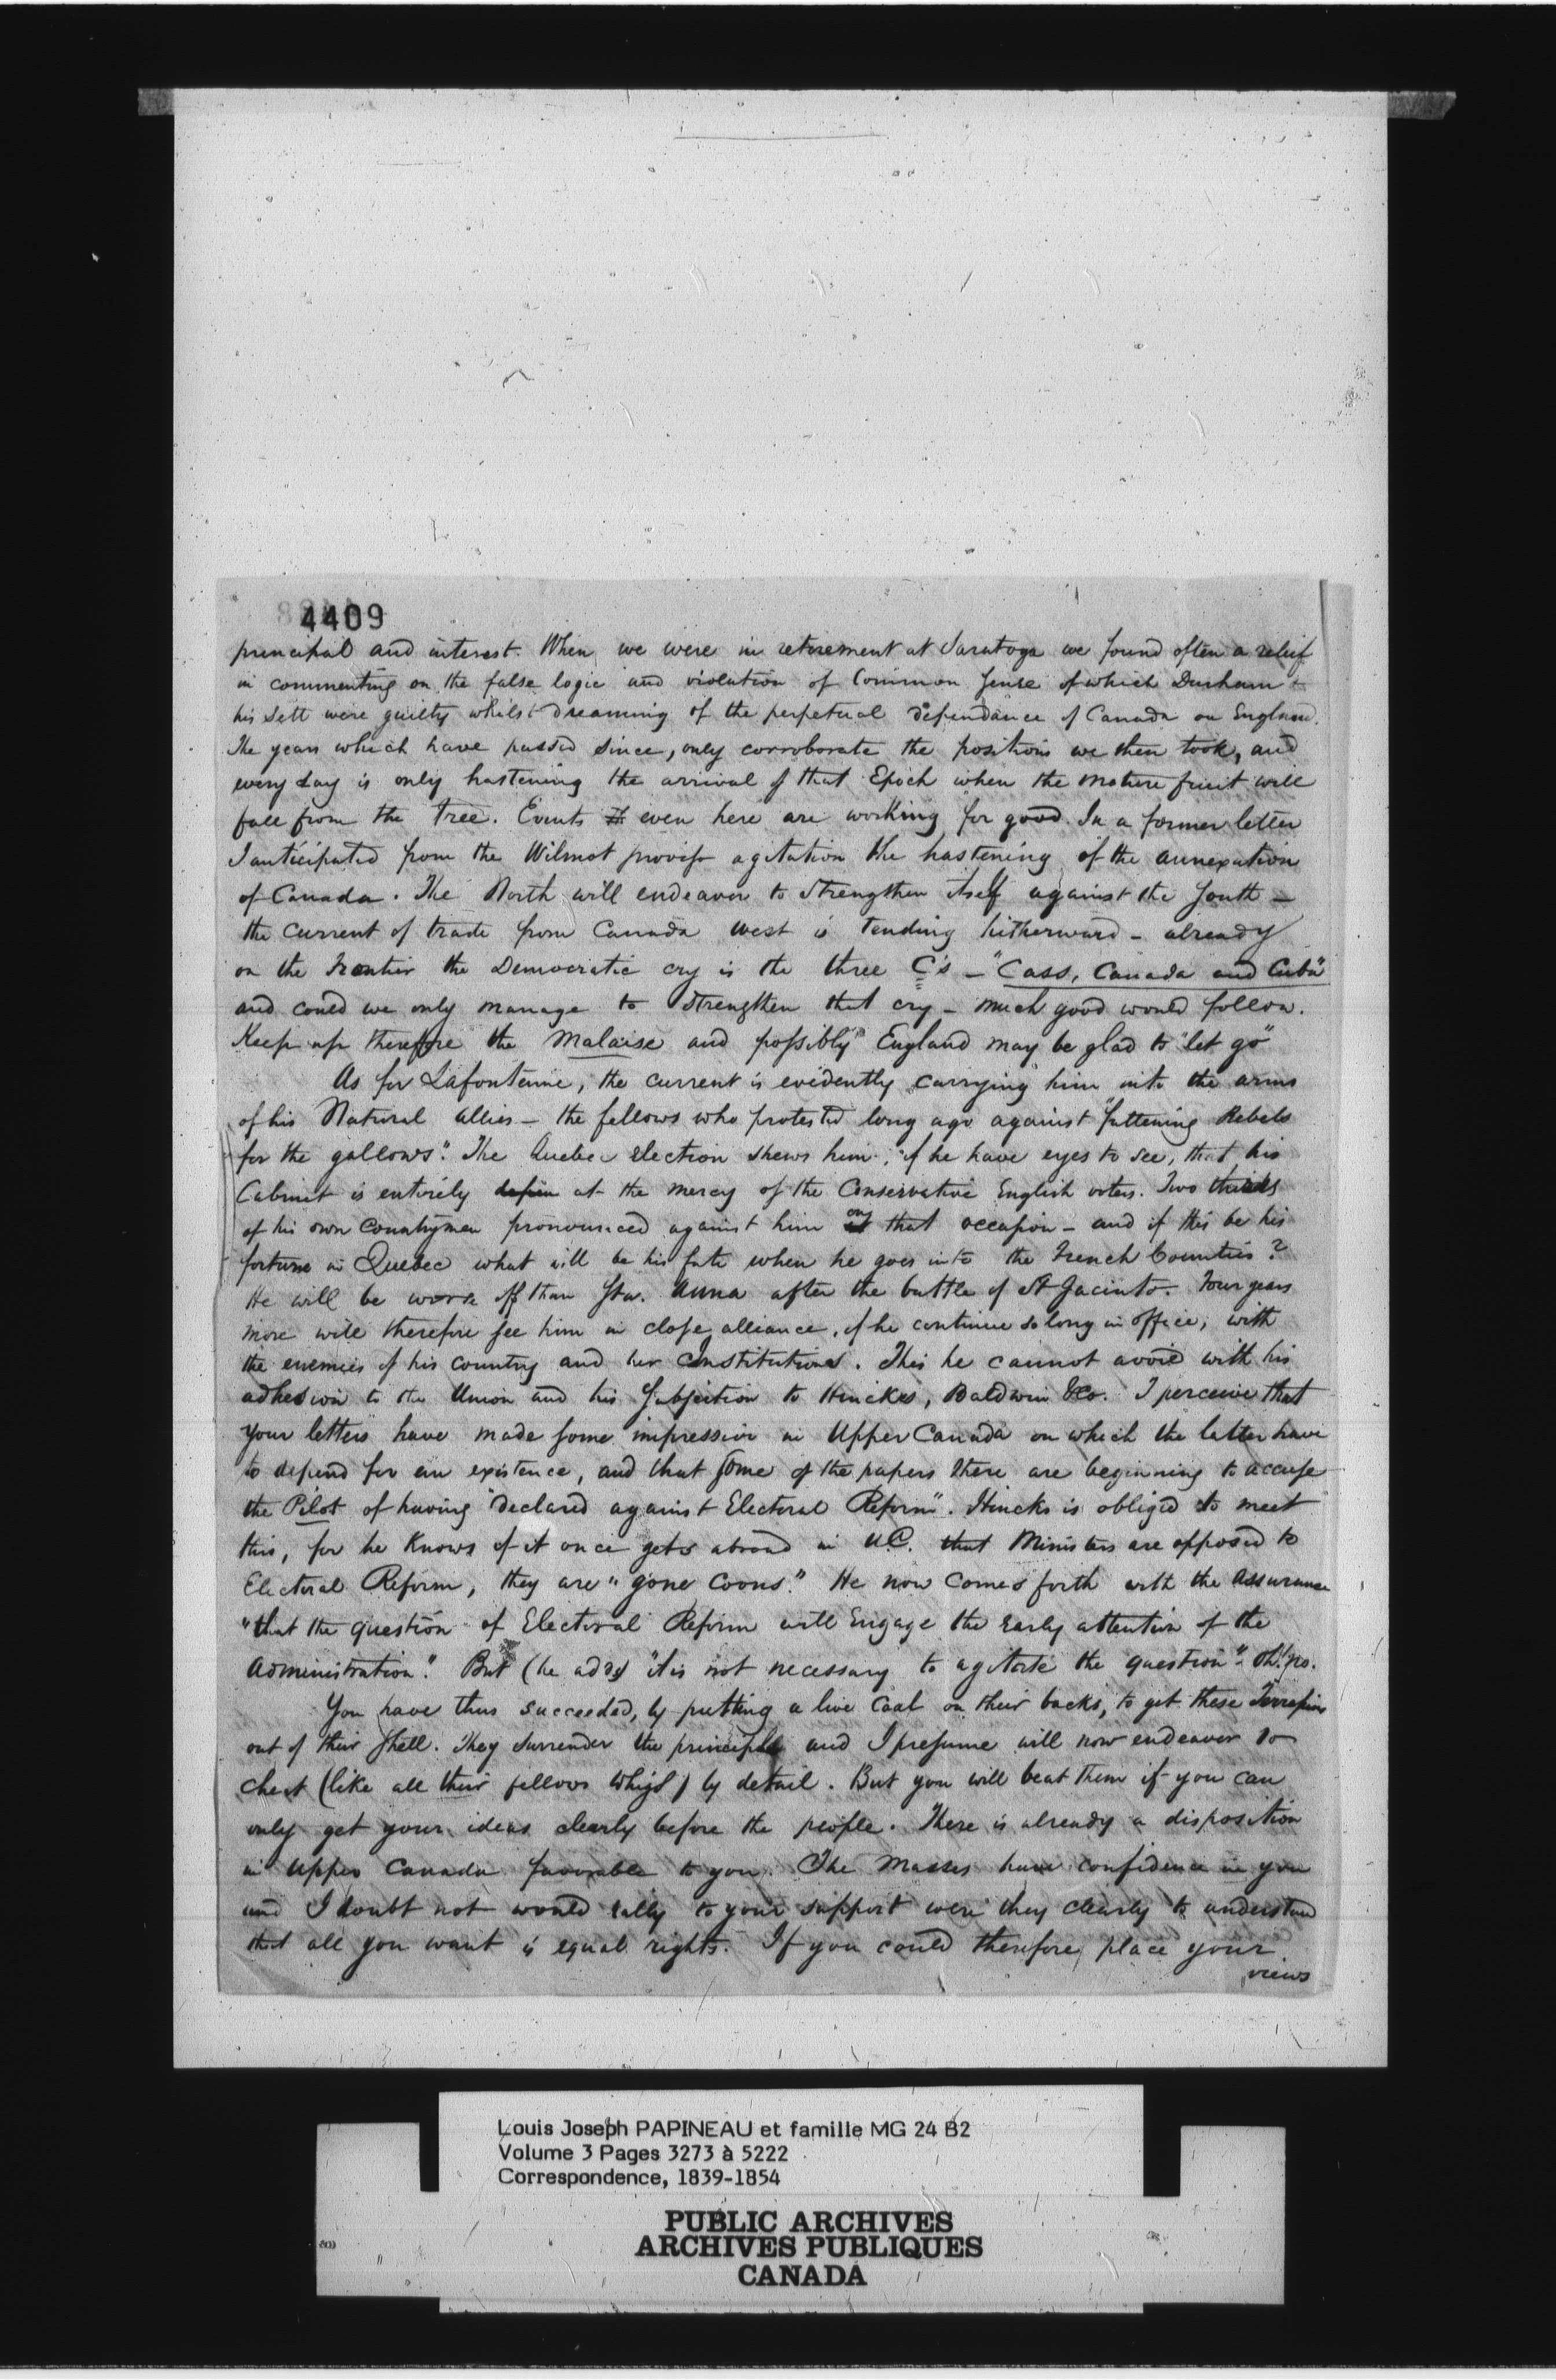 4409
principal and interest. When we were in retirement at Saratoga we found often a relief
in commenting on the false logic and violation of Common Sense of which Durham &
his Sett were guilty whilst dreaming of the perpetual dependance of Canada on England.
The years which have passed since, only corroborate the positions we then took, and
every day is only hastening the arrival of that Epoch when the mature fruit will
fall from the tree. Events even here are working for good. In a former letter
I anticipated from the Wilmot proviso agitation the hastening of the annexation
of Canada. The North will endeavor to strengthen itself against the South -
the current of trade from Canada West is tending hitherward - already
on the Frontier the Democratic cry is the three C's - "Cass, Canada and Cuba"
and could we only manage to strengthen that cry - much good would follow.
Keep up therefore the Malaise and possibly England may be glad to "let go"
As for Lafontaine, the current is evidently carrying him into the arms
of his Natural allies - the fellows who protested long ago against "fattening Rebels
for the gallows". The Quebec election shews him, if he have eyes to see, that his
Cabinet is entirely at the mercy of the Conservative English voters. Two thirds
of his own Countrymen pronounced against him on that occasion - and if this be his
fortune in Quebec what will be his fate when he goes into the French Counties?
He will be worse off than Sta. Anna after the battle of St Jacinto. Four years
more will therefore see him in close alliance, if he continue so long in office, with
the enemies of his country and her Institutions. This he cannot avoid with his
adhesion to the Union and his Subjection to Hincks, Baldwin & Co. I perceive that
your letters have made some impression in Upper Canada on which the latter have
to depend for an existence, and that some of the papers there are beginning to accuse
the Pilot of having "declared against Electoral Reform". Hincks is obliged to meet
this, for he knows if it once gets abroad in U.C. that Ministers are opposed to
Electoral Reform, they are "gone Coons." He now comes forth with the assurance
"that the question of Electoral Reform will Engage the early attention of the
Administration". But (he adds) "it is not necessary to agitate the question" - Oh! no.
You have thus succeeded, by putting a live Coal on their backs, to get these Terrapins
out of their Shell. They surrender the principle and I presume will now endeavor to
cheat (like all their fellow Whigs) by detail. But you will beat them if you can
only get your ideas clearly before the people. There is already a disposition
in Upper Canada favorable to you. The Masses have confidence in you
and I doubt not would rally to your support were they clearly to understand
that all you want is equal rights. If you could therefore place your
views
Louis Joseph PAPINEAU et famille MG 24 B2
Volume 3 Pages 3273 à 5222
Correspondence, 1839-1854
PUBLIC ARCHIVES
ARCHIVES PUBLIQUES
CANADA